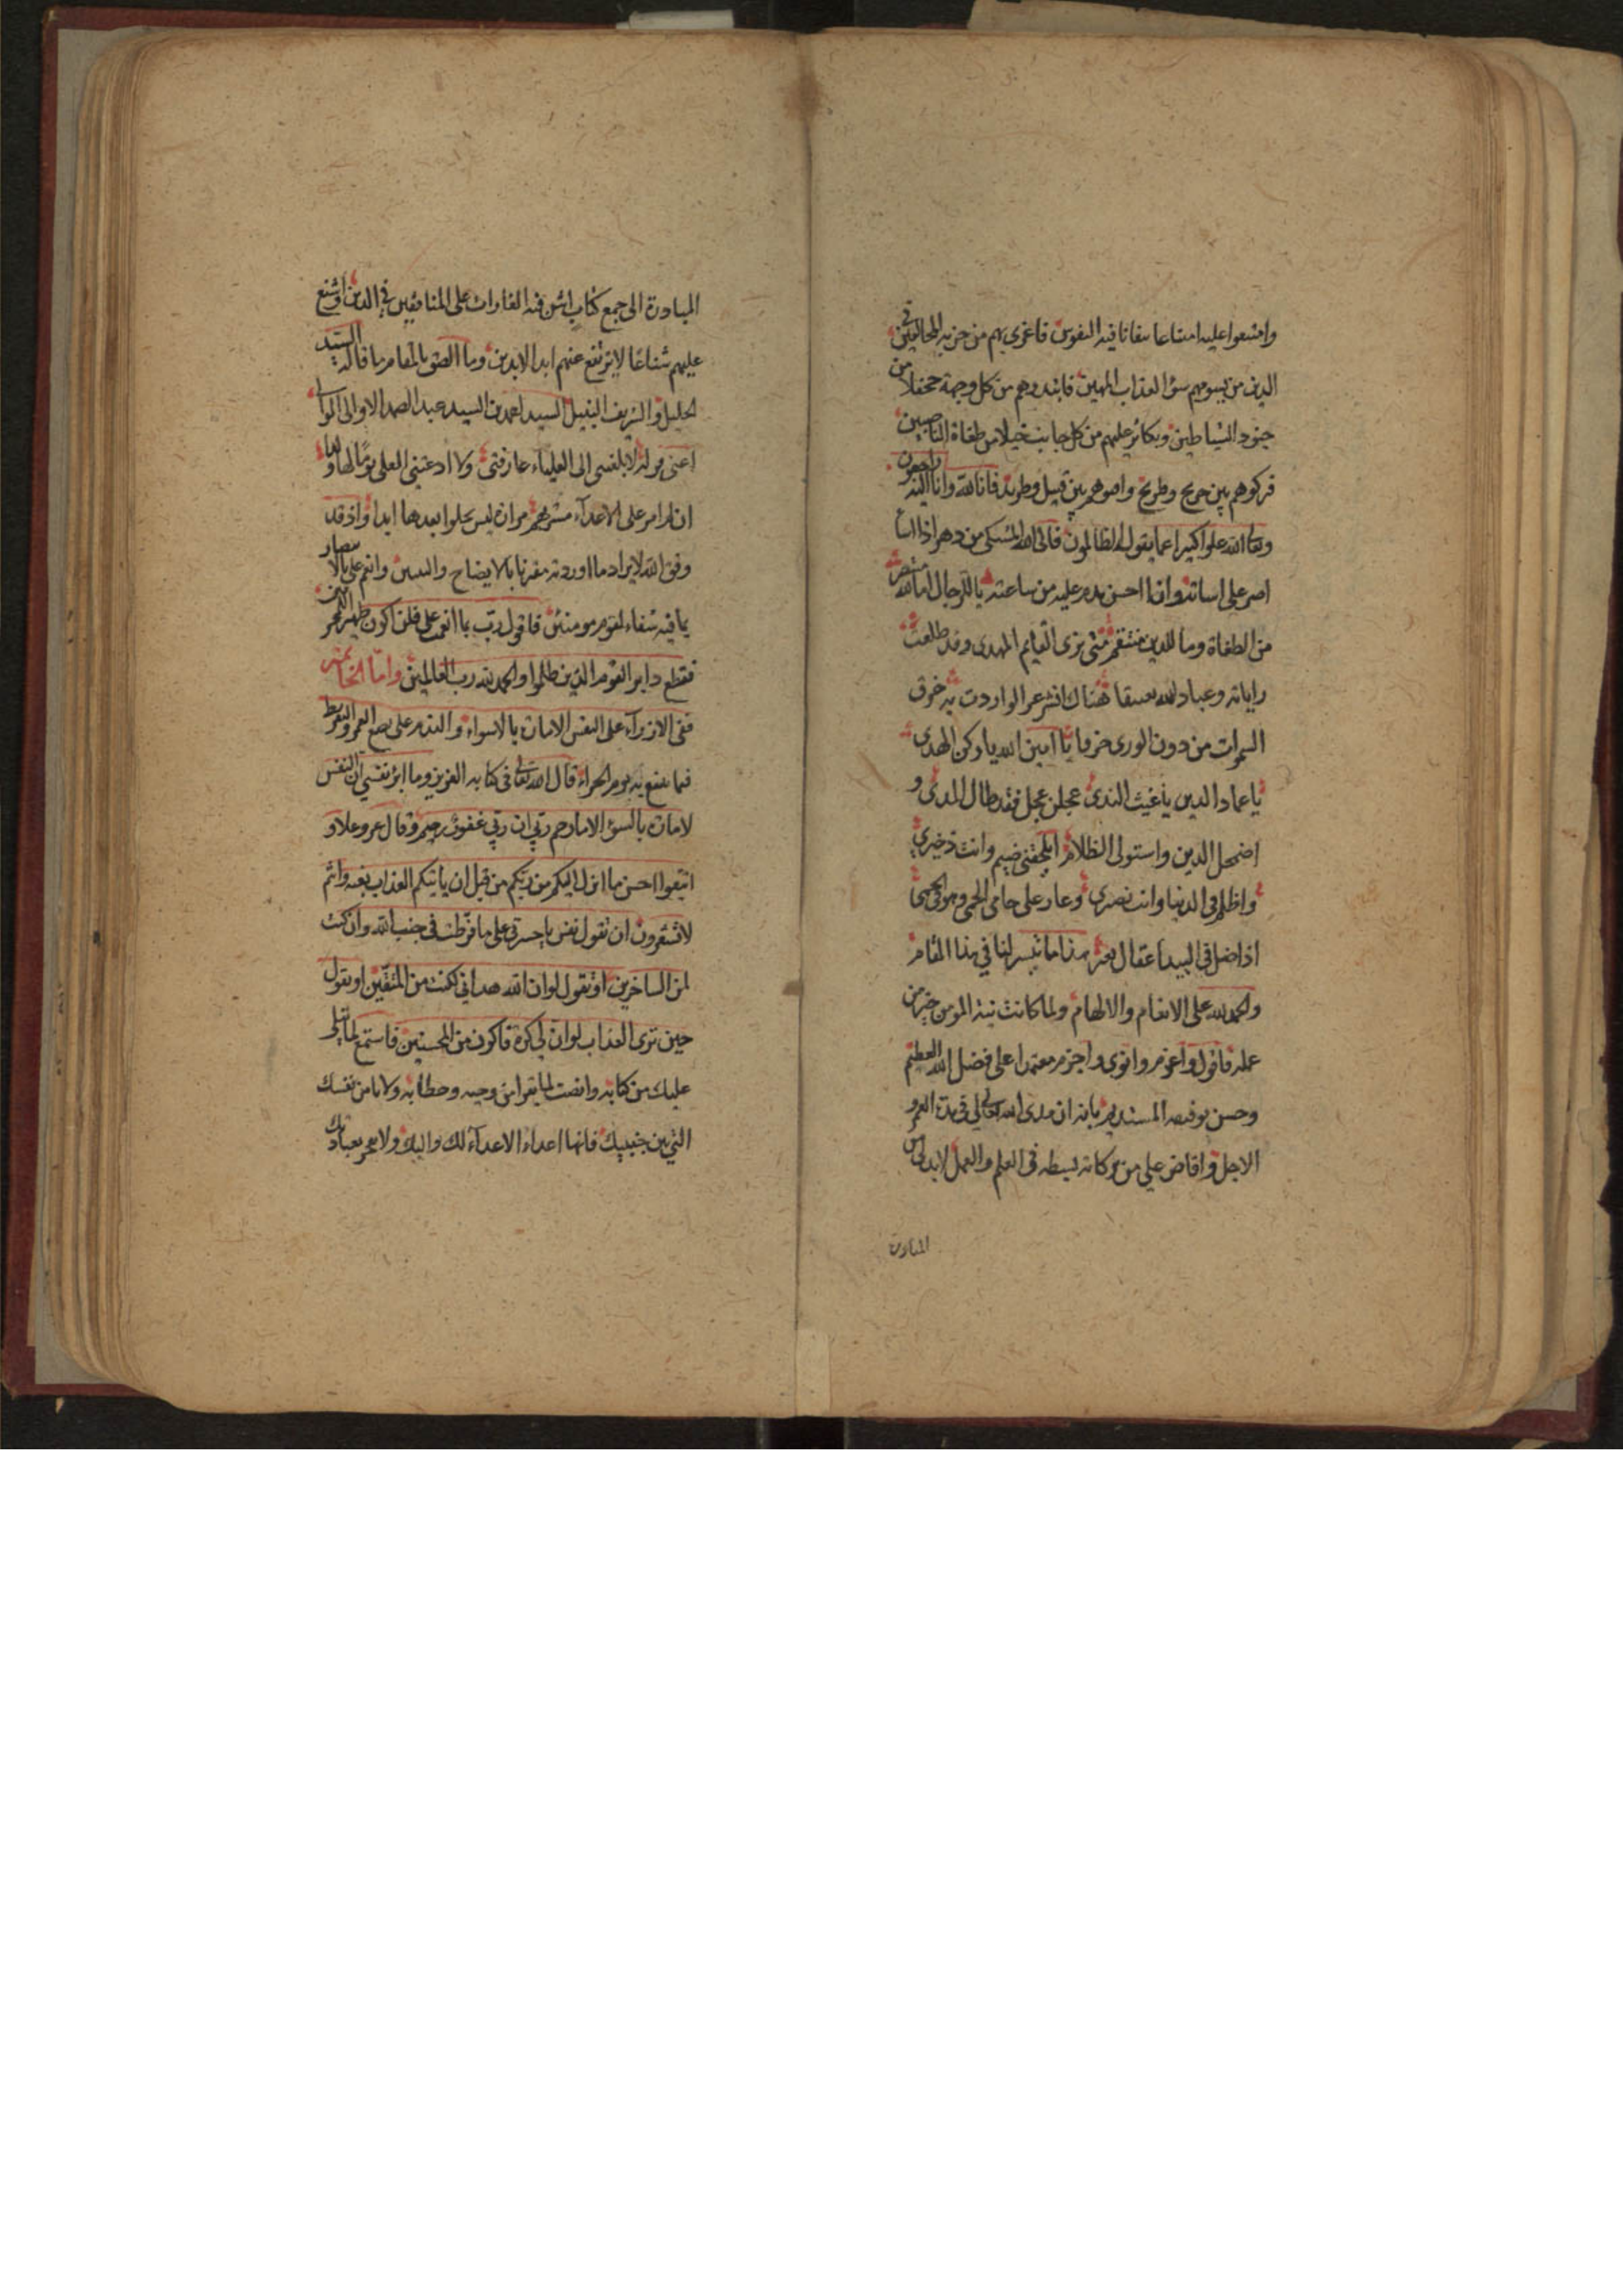 وامتنعوا عليه امتناعا تفانا فيه النفوس فاغرى بهم من حزبه المخالفين في
الدين من يسومهم سؤ العذاب المهين فابتدروهم من كل وجهة جحفلا من
جنود الشياطين وتكاثر عليهم من كل جانب خيلا من طغاة الناصبين
فتركوهم بين جريح وطريح واصوهم بين قتيل وطريد فانا لله وانا اليه راجعون
وتعالى الله علوا كبيرا عما يقول الظالمون فالى الله المشتكى من دهر اذا اسا
اصر على اساته وان احسن ندم عليه من ساعته يا للرجال اما لله منتصر
من الطغاة وما للدين منتقم متى نرى القايم المهدى وقد طلعت
راياته وعباد الله هناك اقشعر الوا ردت به خرق
السموات من دون الورى خرقا يا امين الله يا ركن الهدى
يا عماد الدين يا غيث الندى عجلن عجل فقد طال المدى و
اضمحل الدين واستولى الظلام ايلحقنى ضيم وانت ذخيرتي
واظلم في الدنيا وانت نصيري وعار على حامى الحمى وهو في الحمى
اذا ضل في البيدا عقال بعير هذا ما تيسر لنا في هذا المقام
والحمد لله على الانعام والالهام ولما كانت نية المومن خير من
عمله فاقول واعزم وانوى واجزم معتمدا على فضل الله العظيم
وحسن توفيقه المستديم بانه ان مدى الله تعالى لى في مدة العمر و
الاجل وافاض علي من بركاته بسطه في العلم والعمل لابد لى من
المبادرة
المبادرة الى جمع كتاب اشن فيه الغارات على المنافقين في الدين واشنع
عليهم شناعًا لا يرتفع عنهم ابد الابدين وما الصق بالمقام ما قاله السيد
الجليل والشريف النبيل السيد احمد بن السيد عبد الصمد الاوالى
اعنى قوله لا بلغتنى الى العلياء عارفتى ولا دعتنى العلى يومًا لها ولدا
ان لم امر على الاعداء مشربهم مرارة ليس يحلوا بعدها ابدا واذ قد
وفق الله لايراد ما اوردته مقرنا بالايضاح والتبيين واتم على بالاسعار
بما فيه شفاء لقوم مومنين فاقول رب بما انعمت على فلن اكون ظهيرا للمجرمين
فقطع دابر القوم الذين ظلموا والحمد لله رب العالمين واما الخاتمه
ففى الازراء على النفس الامارة بالاسواء والتندم على العمر والتفريط
فيما ينفع به يوم الجزاء قال الله تعالى في كتابه العزيز وما ابرئ نفسي ان النفس
لامارة بالسؤ الا ما رحم ربي ان ربي غفور رحيم وقال عز وعلا و
اتبعوا احسن ما انزل اليكم من ربكم من قبل ان ياتيكم العذاب بغتة وانتم
لا تشعرون ان تقول نفس يا حسرتى على ما فرطت في جنب الله وان كنت
لمن الساخرين او تقول لو ان الله هداني لكنت من المتقين او تقول
حين ترى العذاب لو ان لي كرة فاكون من المحسنين فاستمع لما يتلى
عليك من كتابه وانصت لما يقرا من وحيه وخطابه ولا تامن نفسك
التي بين جنبيك فانها اعداء الاعداء لك واليك ولا بعبادتك